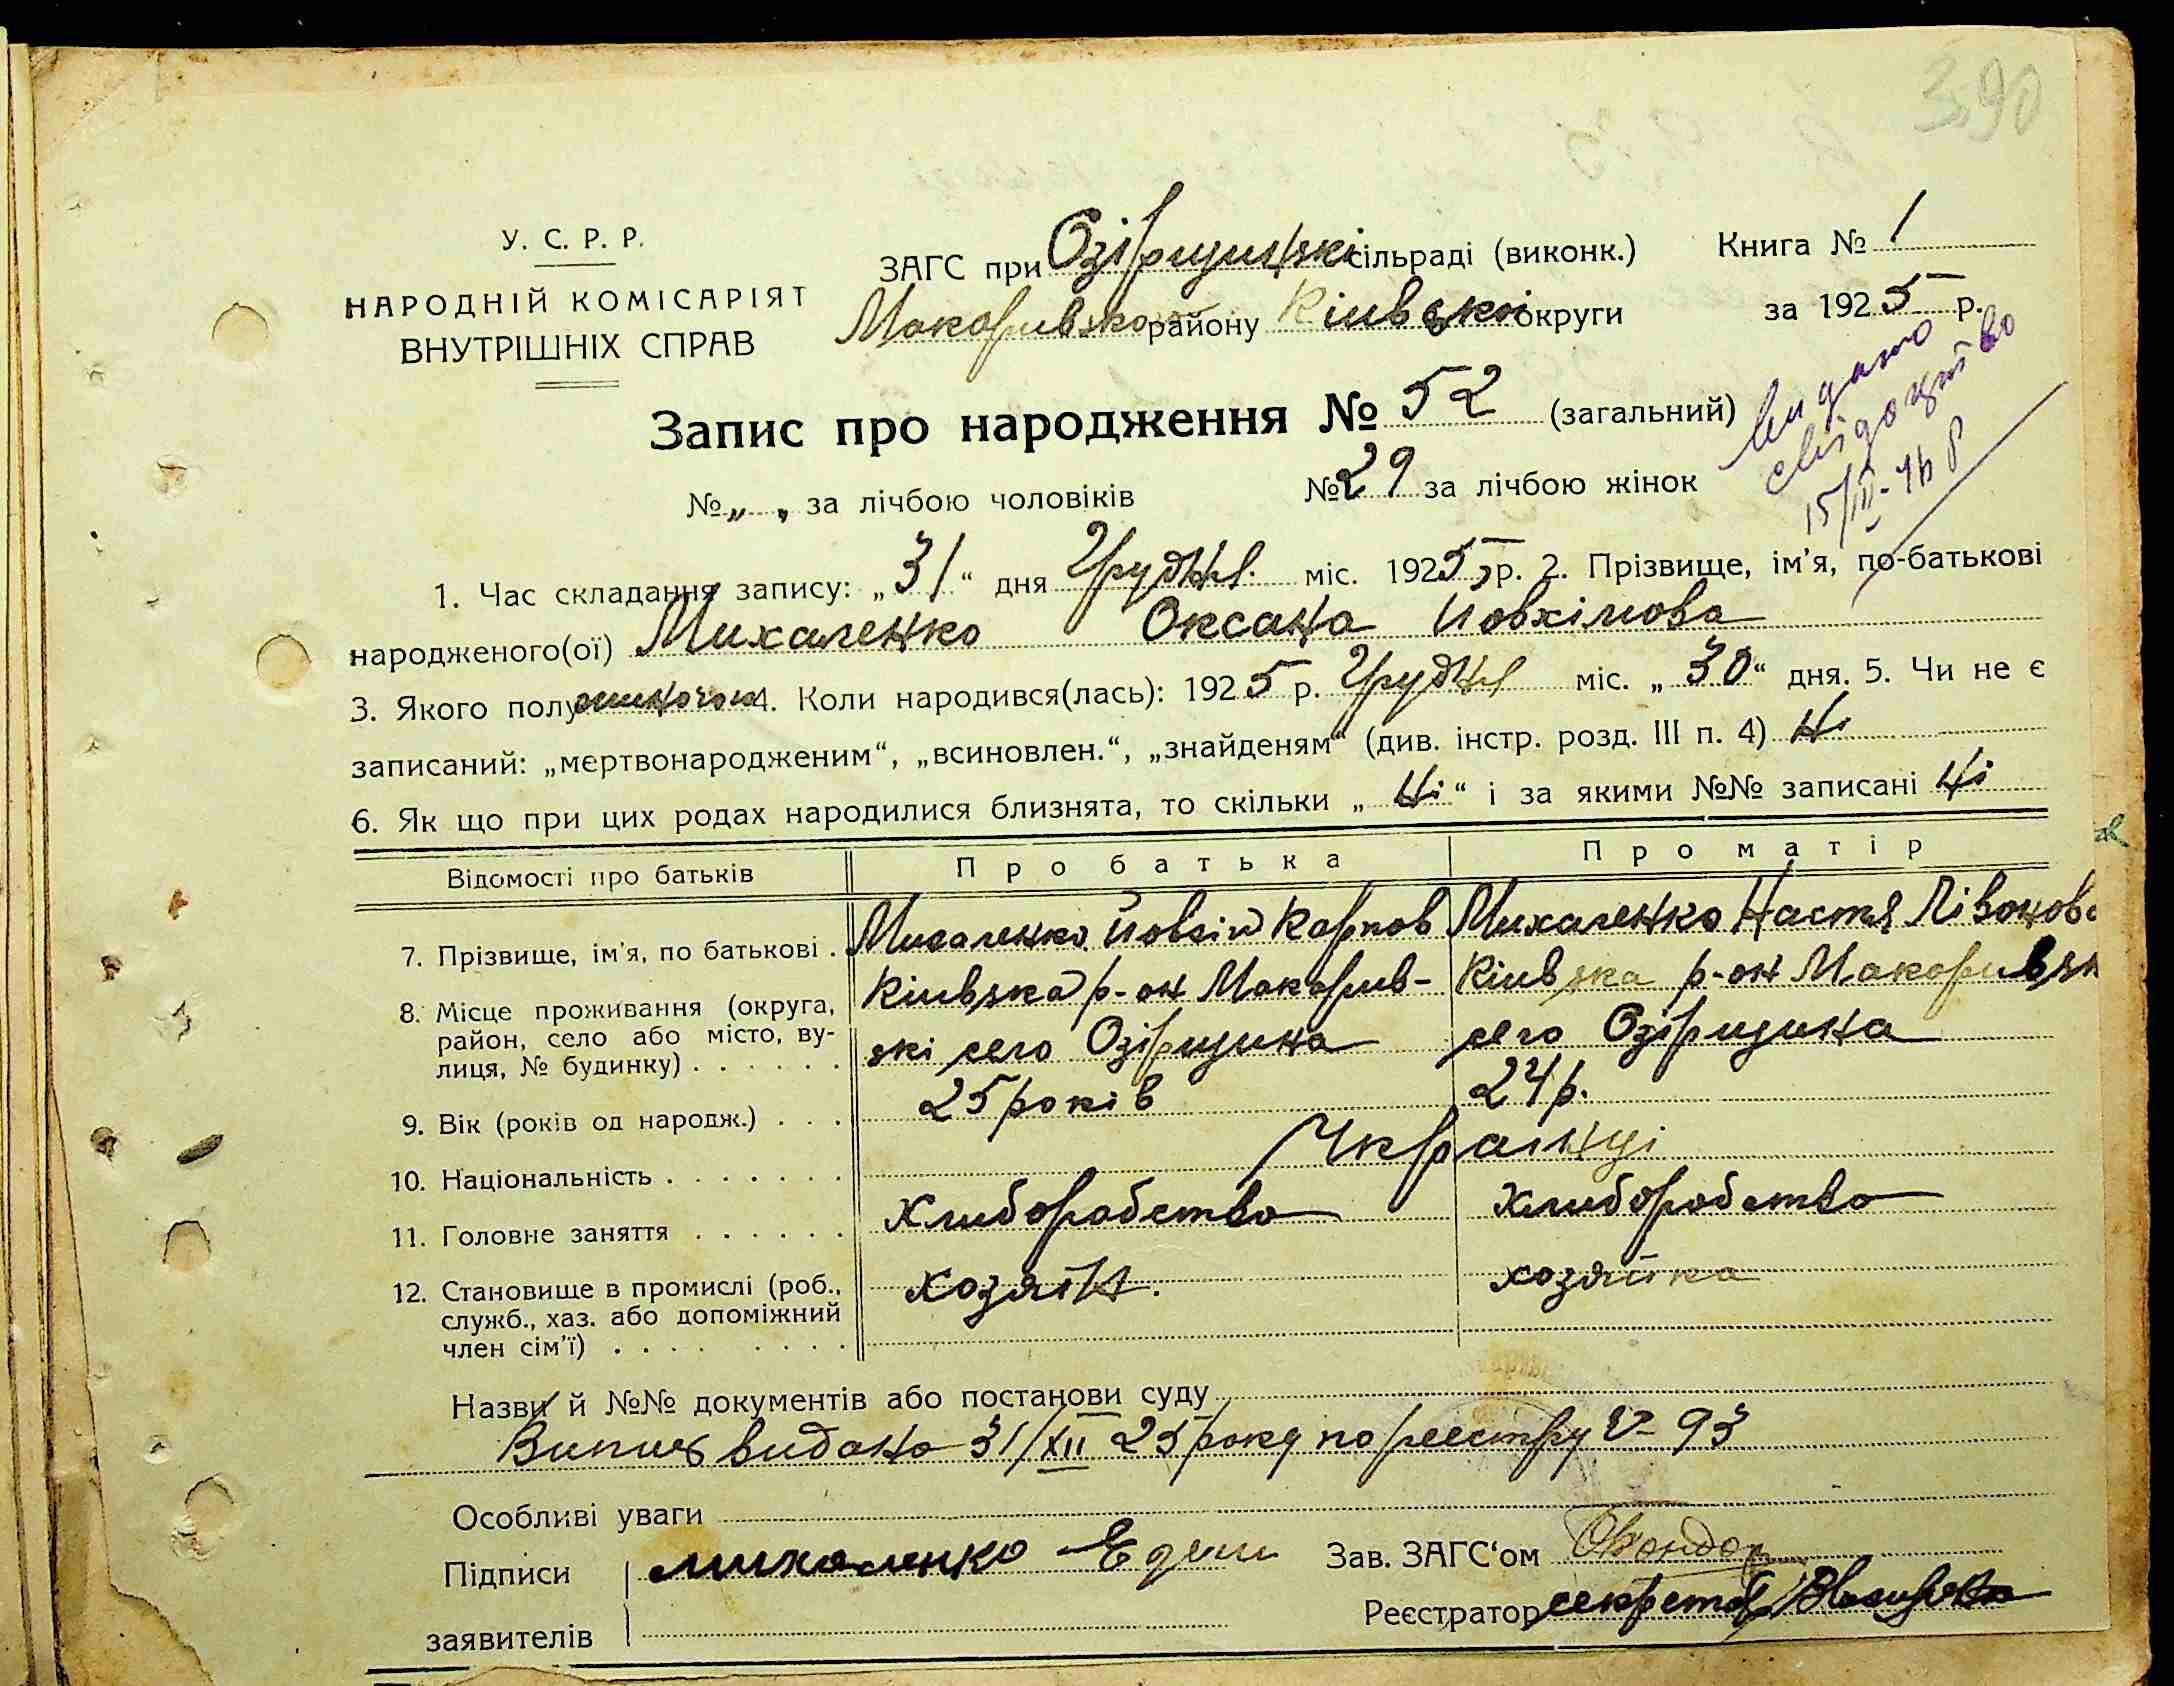 390
У. С. Р. Р.
НАРОДНІЙ КОМІСАРІЯТ
ВНУТРІШНІХ СПРАВ
ЗАГС при Озірщинські сільраді (виконк.) Книга № 1
Макаривсько району Кіивськоі округи за 1925 р.
Запис про народження № 52 (загальний)
видано
свідоцтво
15/III-46 р
№ „ „ за лічбою чоловіків № 29 за лічбою жінок
1. Час складання запису: „31“ дня Грудня міс. 1925 р. 2. Прізвище, ім'я, по-батькові
народженого(ої) Михаленко Оксана Йовхімова
3. Якого полу жиночого 4. Коли народився(лась): 1925 р. Грудня міс. „30“ дня. 5. Чи не є
записаний: „мертвонародженим“, „всиновлен.“, „знайденям“ (див. інстр. розд. III п. 4) Ні
6. Як що при цих родах народилися близнята, то скільки „Ні“ і за якими №№ записані Ні
Відомості про батьків Про батька Про матір
7. Прізвище, ім'я, по батькові . Михаленко Йовхім Карпов Михаленко Настя Лівонова
8. Місце проживання (округа, район, село або місто, вулиця, № будинку) . . . . . . Кіивзка р-он Макарив-
зкі село Озірщина
Кіивзка р-он Макаривзк
село Озірщина
9. Вік (років од народж.) . . . 25 років 24 р.
10. Національність . . . . . . . Украінці
11. Головне заняття . . . . . . Хлиборобство Хлиборобство
12. Становище в промислі (роб., служб., хаз. або допоміжний член сім'ї) . . . . . . . . Хозяїн. хозяйка
Назви й №№ документів або постанови суду
Випис видано 31/XII 25 року по реестру № 93
Особливі уваги
Підписи Михаленко Зав. ЗАГС'ом
заявителів Реєстратор секретар